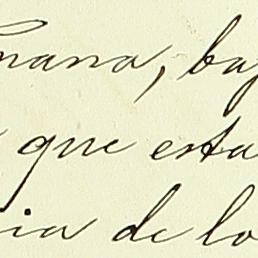 mana, baj
que esta
ia de lo